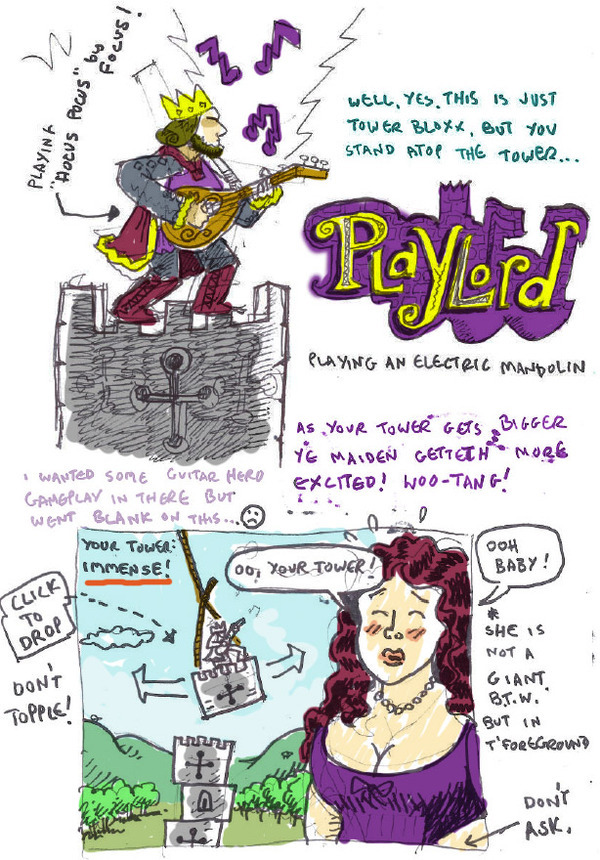 PLAYING
"HOCUS POCUS" by
FOCUS!
WELL, YES, THIS IS JUST
TOWER BLOXX, BUT YOU
STAND ATOP THE TOWER...
PLAYLORD
PLAYING AN ELECTRIC MANDOLIN
AS YOUR TOWER GETS BIGGER
YE MAIDEN GETTETH MORE
EXCITED! WOO-TANG!
I WANTED SOME GUITAR HERO
GAMEPLAY IN THERE BUT
WENT BLANK ON THIS...
YOUR TOWER:
IMMENSE!
OO, YOUR TOWER!
OOH
BABY!
CLICK
TO
DROP
DON'T
TOPPLE!
* SHE IS
NOT A
GIANT
B.T.W.
BUT IN
T'FOREGROUND
DON'T
ASK.